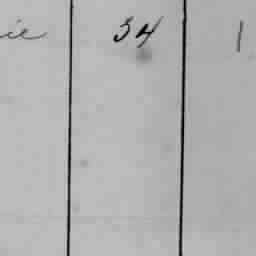 ie 34 1